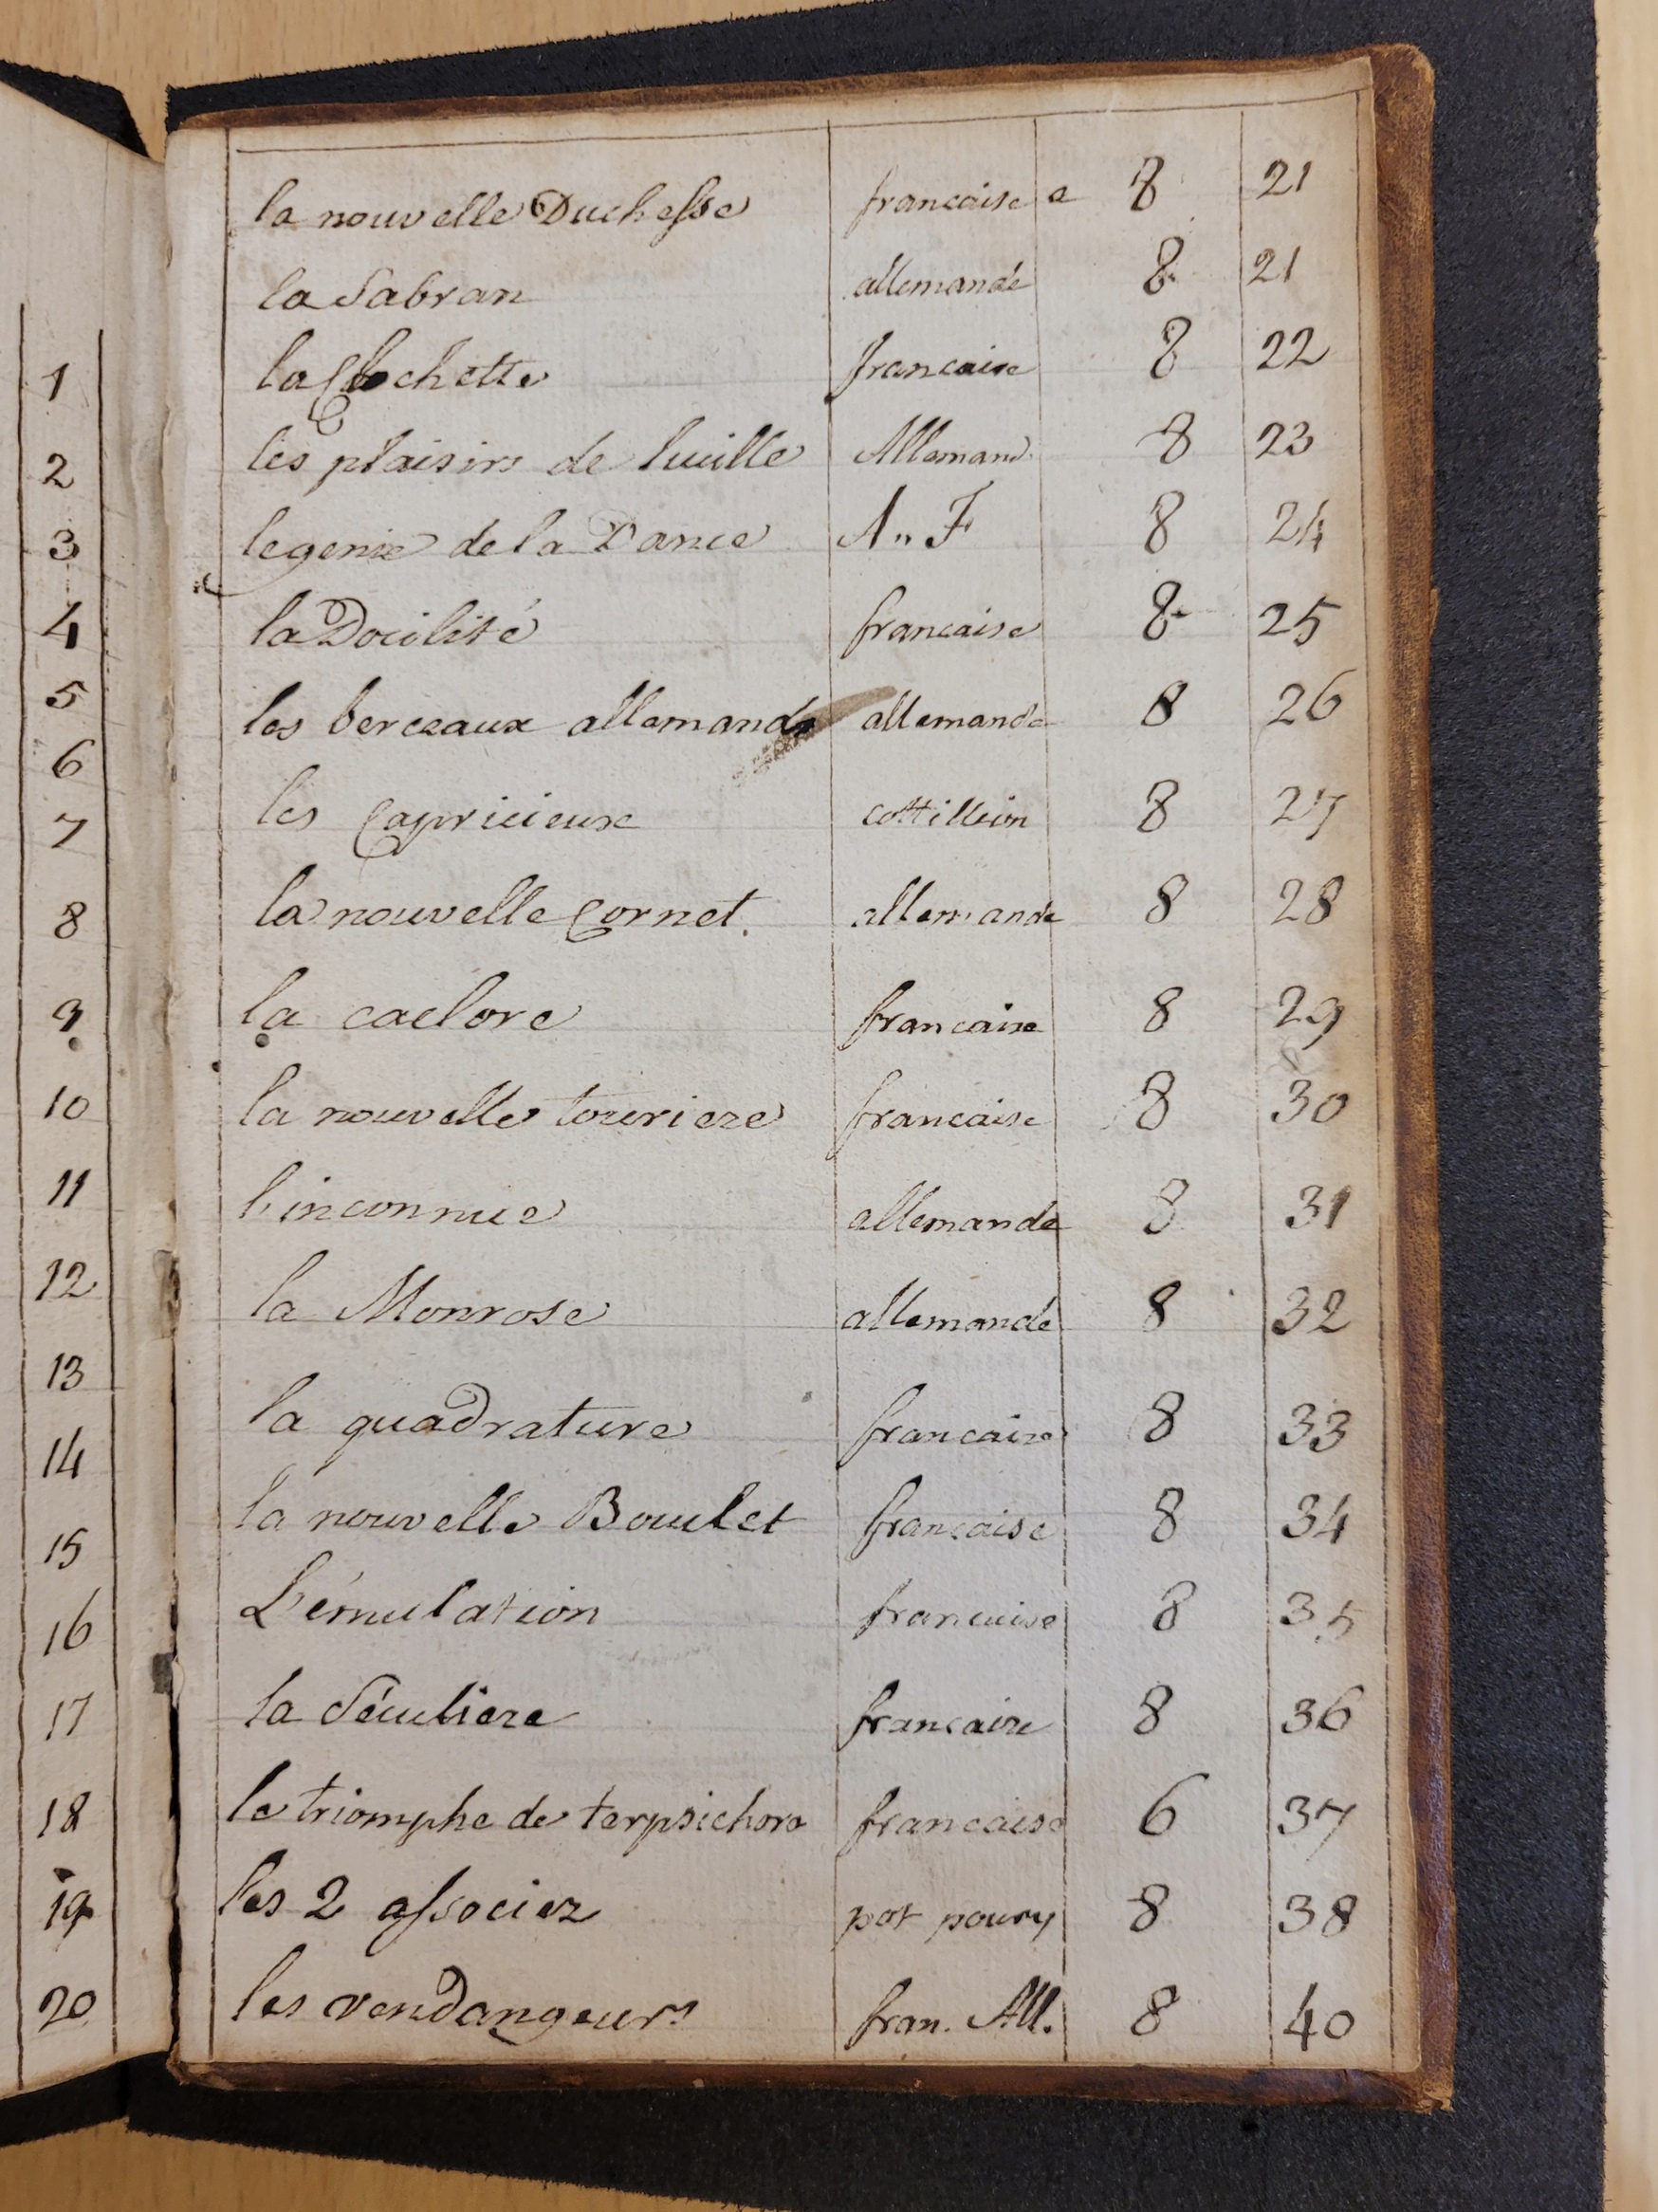 1
2
3
4
5
6
7
8
9
10
11
12
13
14
15
16
17
18
19
20
la nouvelle Duchesse francaise a 8 21
la Sabran allemande 8 21
la Clochette francaise 8 22
les plaisirs de luille Allemand 8 23
le genie de la Dance A " F 8 24
la Docilité francaise 8 25
les berceaux allemands allemande 8 26
les Capricieuse cottillion 8 27
la nouvelle Cornet. allemande 8 28
la caelore francaise 8 29
la nouvelle touriere francaise 8 30
l'inconnue allemande 8 31
la Monrose allemande 8 32
la quadrature francaise 8 33
la nouvelle Boulet francaise 8 34
L'émulation francaise 8 35
la Séculiere francaise 8 36
le triomphe de terpsichore francaise 6 37
les 2 associez pot poury 8 38
les vendangeurs fran. All. 8 40